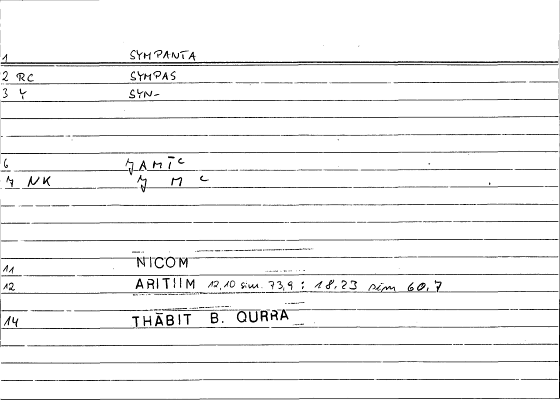 1 SYMPANTA
2 RC SYMPAS
3 Y SYN-
6 ȷAMĪʿ
7 NK ȷ M ʿ
11 NICOM
12 ARITIIM 12,10 sim. 73,9 ; 18,23 sim 60,7
14 THĀBIT B. QURRA